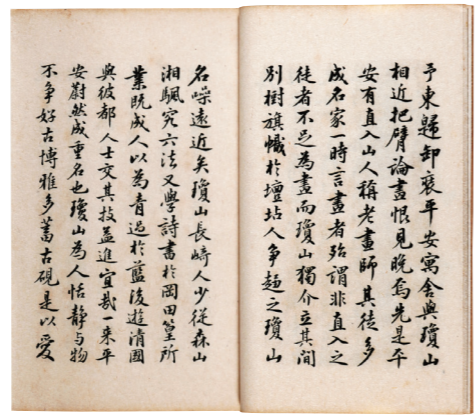 予東歸卸裝平安寓舍與瓊山
相近把臂論畫恨見晚焉先是平
安有直入山人稱老畫師其徒多
成名家一時言畫者殆謂非直入之
徒者不足為畫而瓊山獨介立其間
別樹旗幟於壇坫人爭趨之瓊山
名噪遠近矣瓊山長崎人少從森山
湘颿究六法又學詩書於岡田篁所
業既成人以為青過於藍後遊清國
與彼都人士交其技益進宜哉一来平
安蔚然成重名也瓊山為人恬静与物
不争好古博雅多蓄古硯是以愛